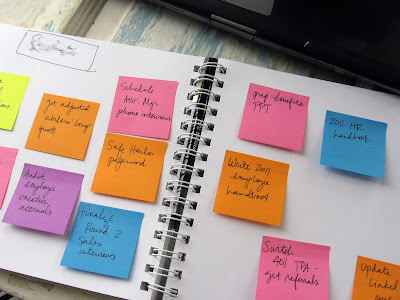 get adjusted
Workers' Comp
quote
Schedule
Asst. Mgr.
phone interviews
Safe Harbor
paperwork
Audit
employee
vacation
accruals
Finalize
Round 2
Sales
interviews
prep benefits
PPT
2011 HR
handbook
Write 2011
employee
handbook
Switch
401 TPA -
get referrals
Update
Linked